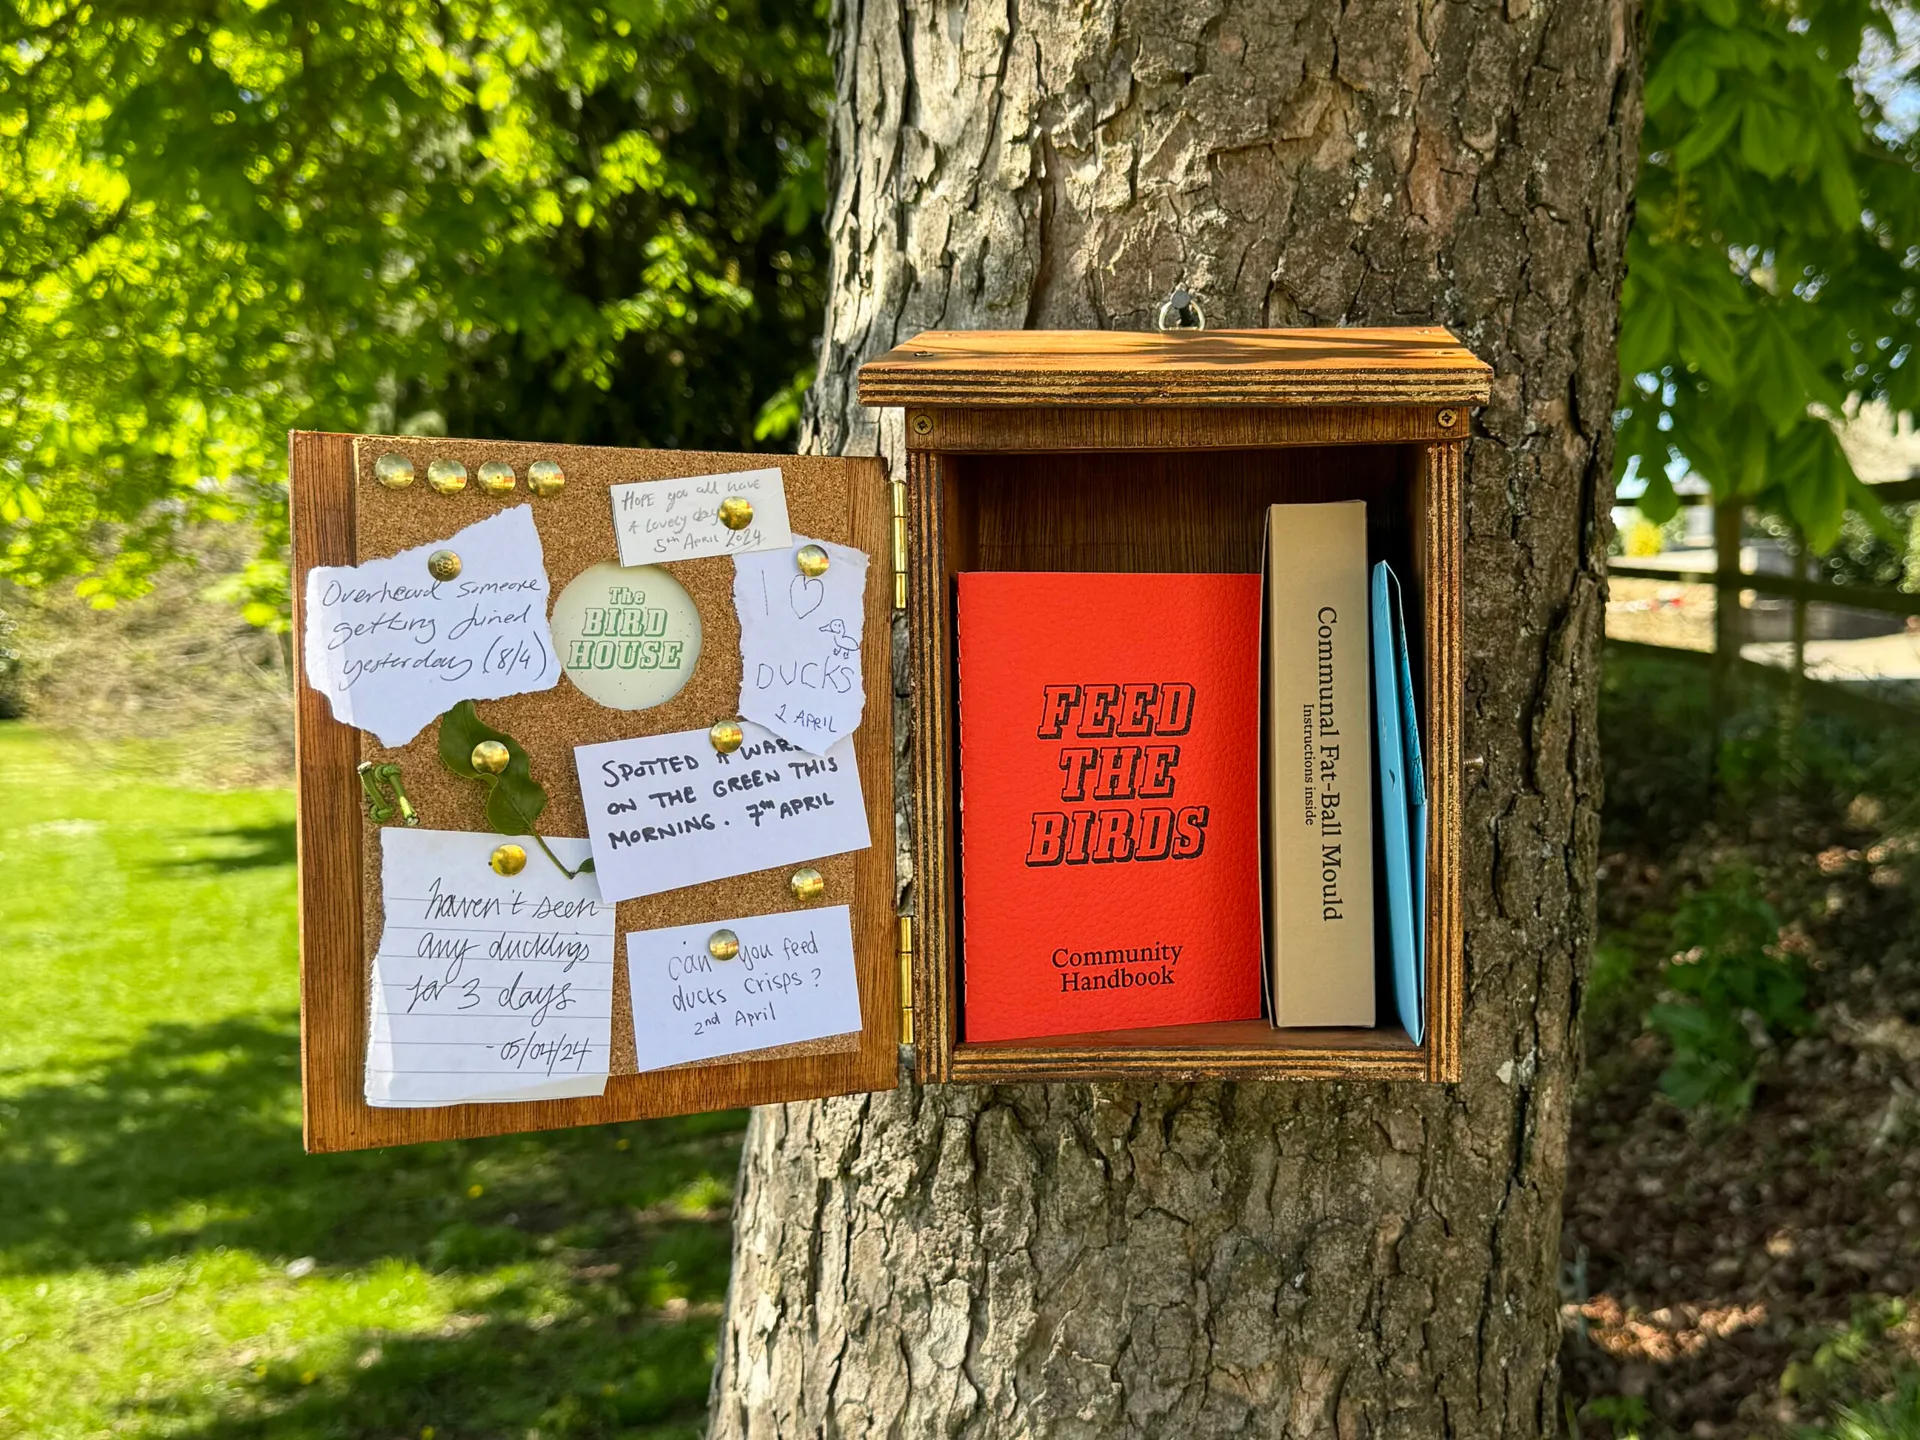 HOPE you all have
A lovely day
5th April 2024
Overheard someone
getting fined
yesterday (8/4)
The
BIRD
HOUSE
I ♡
DUCKS
2 APRIL
SPOTTED A
ON THE GREEN THIS
MORNING. 7TH APRIL
haven't seen
any ducklings
for 3 days
- 05/04/24
can you feed
ducks crisps?
2nd April
FEED
THE
BIRDS
Community
Handbook
Communal Fat-Ball Mould
Instructions inside